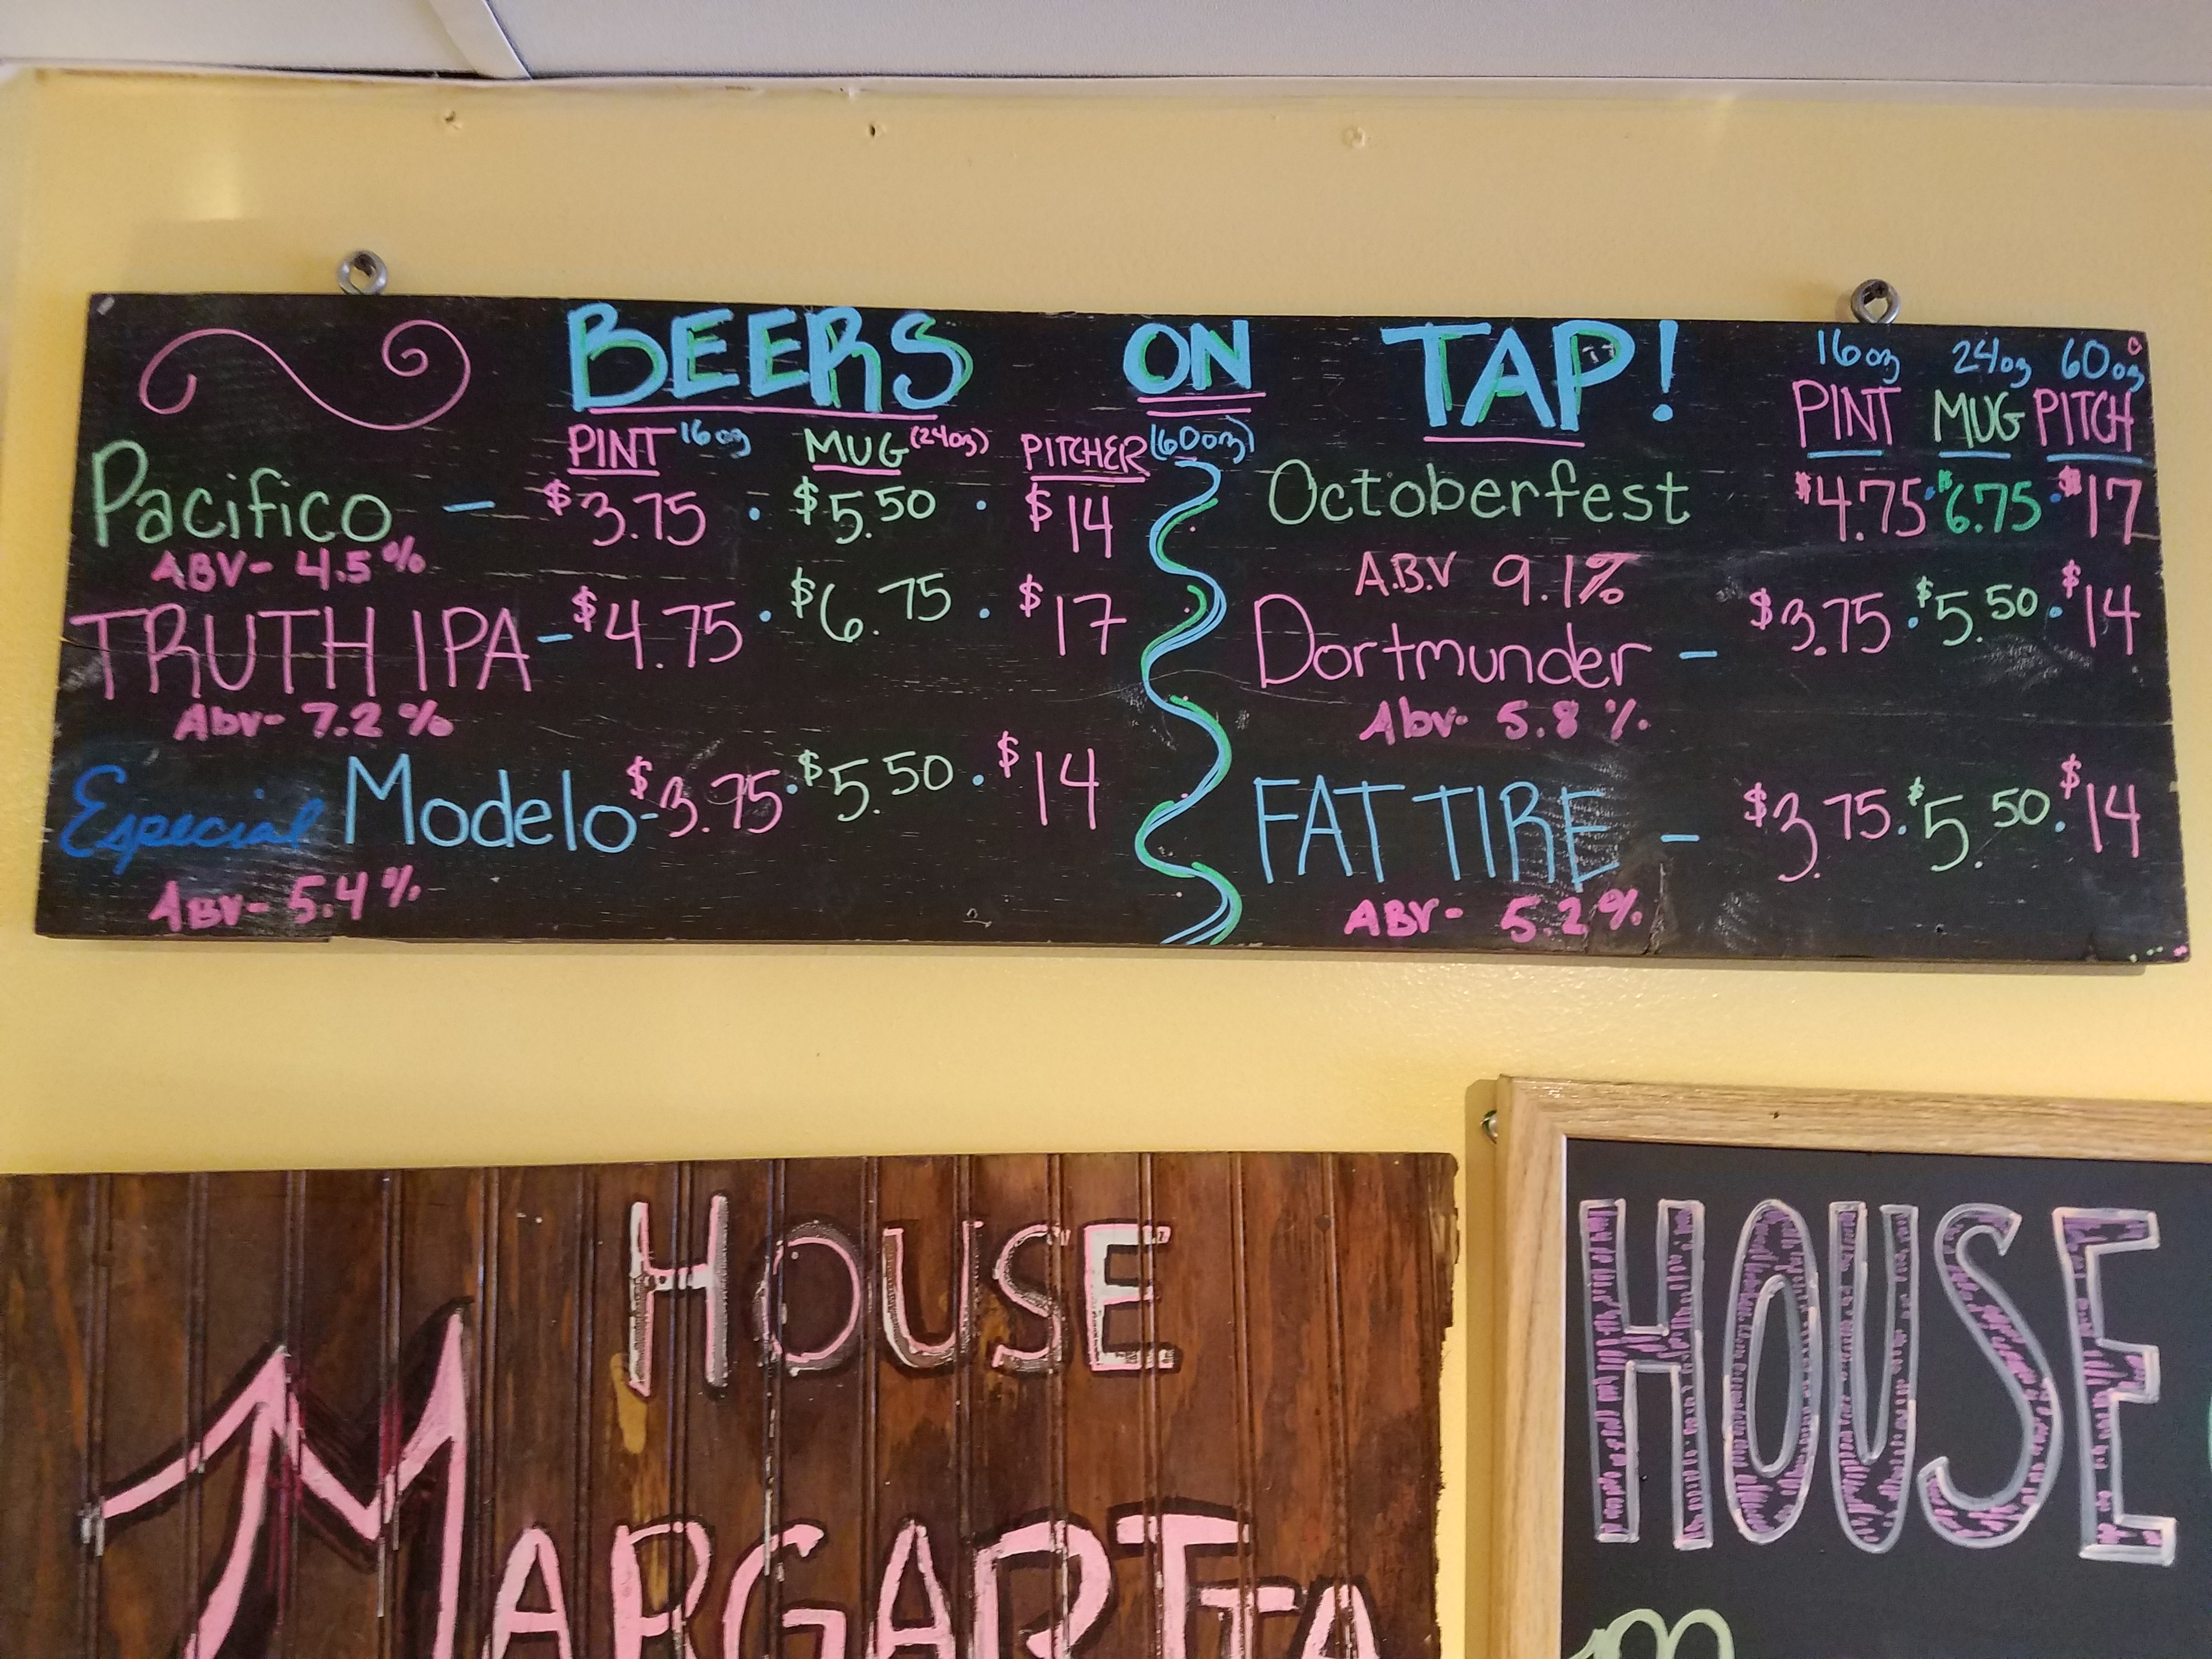 BEERS ON TAP!
PINT 16oz MUG (24oz) PITCHER (60oz)
Pacifico - $3.75 · $5.50 · $14
ABV- 4.5%
TRUTH IPA - $4.75 · $6.75 · $17
Abv- 7.2%
Especial Modelo - $3.75 · $5.50 · $14
ABV- 5.4%
16oz 24oz 60oz
PINT MUG PITCH
Octoberfest $4.75 · $6.75 · $17
A.B.V 9.1%
Dortmunder - $3.75 · $5.50 · $14
Abv- 5.8%
FAT TIRE - $3.75 · $5.50 · $14
ABV- 5.2%
HOUSE
MARGARITA
HOUSE